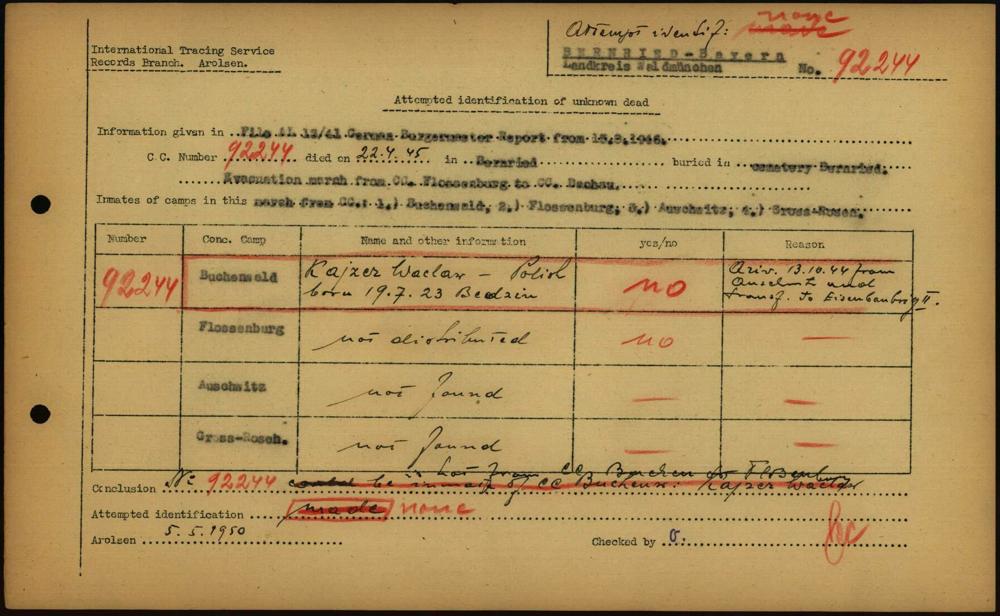 Attempt identif: none
made
International Tracing Service
Records Branch. Arolsen.
BERNRIED-Bayern
Landkreis Waldmünchen No. 92244
Attempted identification of unknown dead
Information given in File AL 12/41 German Burgermaster Report from 15.8.1946.
C.C. Number 92244 died on 22.4.45 in Bernried buried in cemetery Bernried.
Evacuation marsh from CC. Flossenburg to CC. Dachau.
Inmates of camps in this marsh from CC.: 1.) Buchenwald, 2.) Flossenburg, 3.) Auschwitz, 4.) Gross-Rosen.
Number Conc. Camp Name and other information yes/no Reason
92244 Buchenwald Kajzer Waclaw - Polish born 19.7.23 Bedzin no Ariv. 13.10.44 from Auschwitz and transf. to Eisenbahnbrig II.
Flossenburg not distributed no —
Auschwitz not found — —
Gross-Rosch. not found — —
is not from CC Buchen or Flossenburg
Conclusion No 92244 could be inmate of CC Buchenw: Kajzer Waclaw
Attempted identification made none
Arolsen 5.5.1950 Checked by